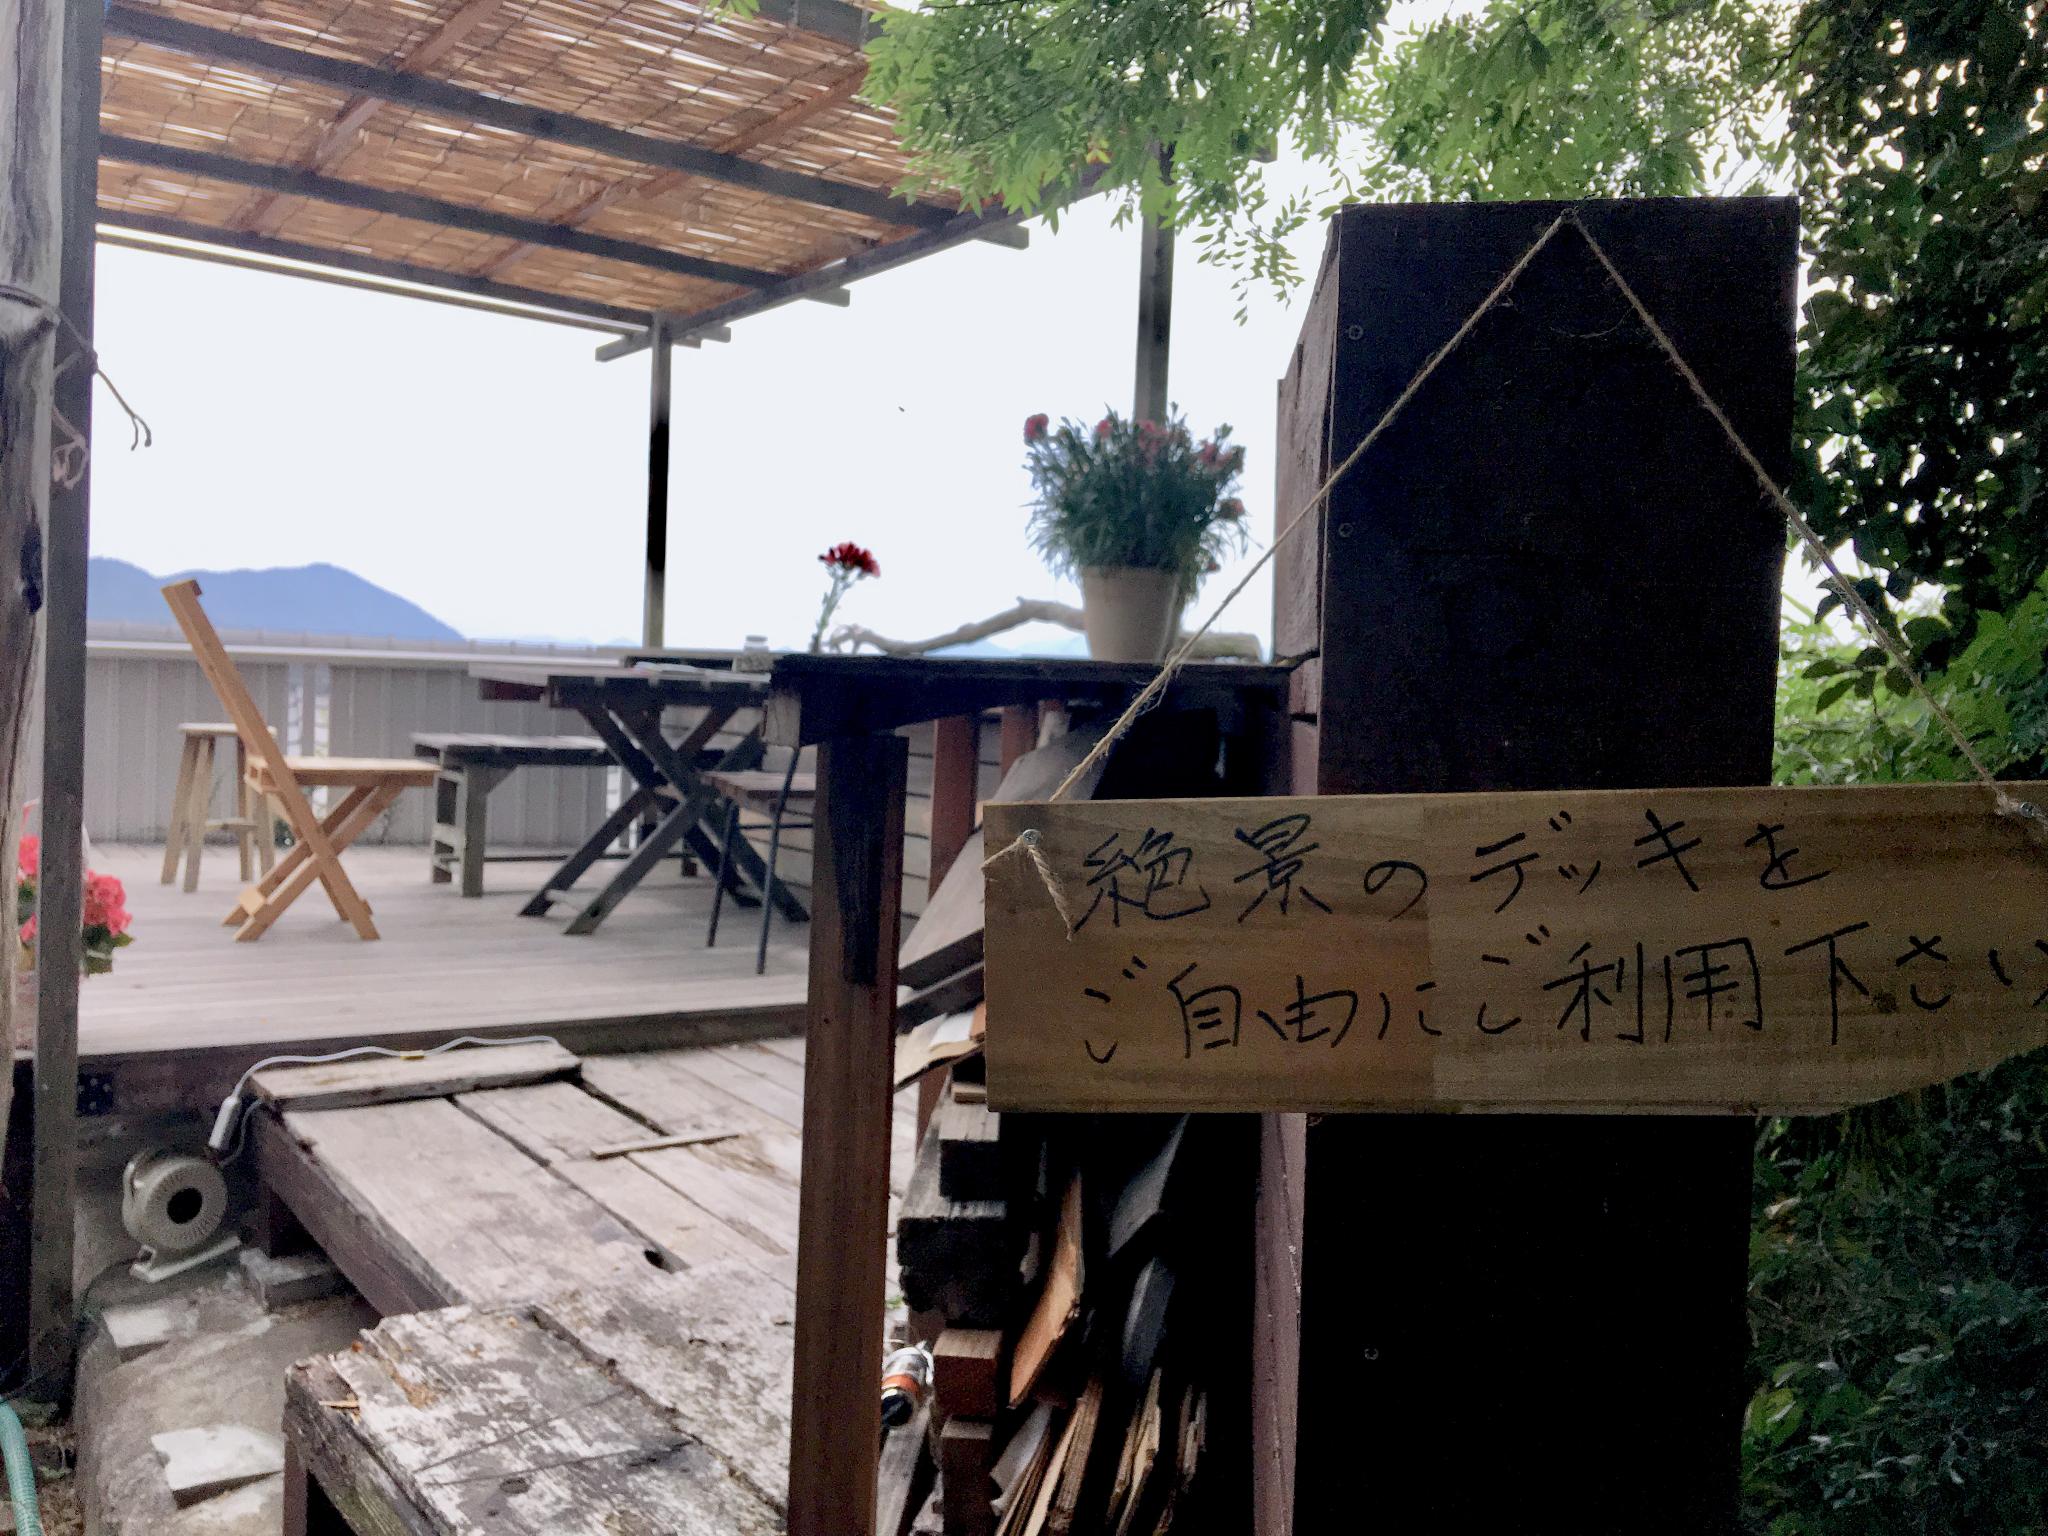 絶景のデッキを
ご自由にご利用下さい